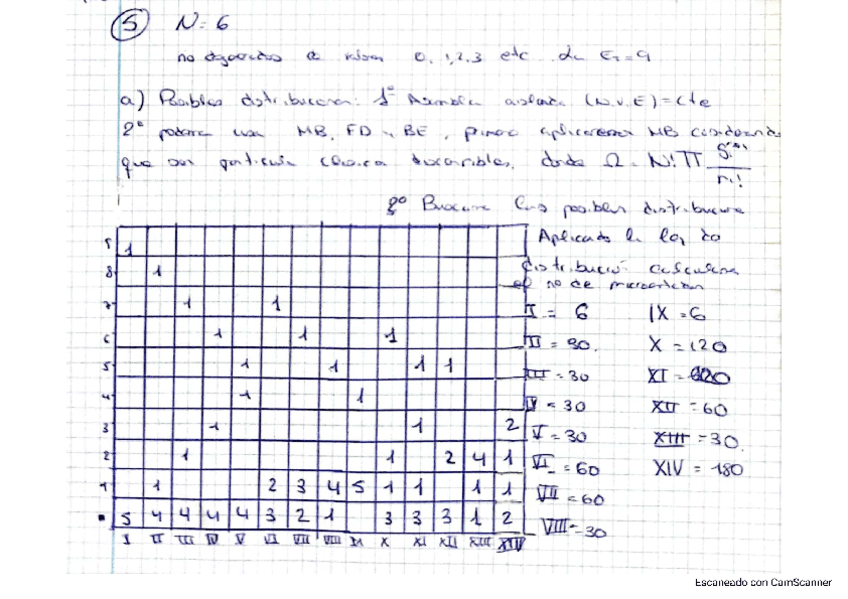 5 N = 6
no degenerados 0, 1, 2, 3 etc de E = 9
a) Posibles distribucion: 1º Asamblea aislada (N, V, E) = cte
2º MB, FD y BE, aplicaremos MB
que son particula clasica donde Ω = N! Π gi^ni / ni!
3º Buscamos las posibles distribucion
Aplicado la ley de
distribució calculamos
el no de microestados
9 1
8 1
7 1 1
6 1 1 1
5 1 1 1 1
4 1 1
3 1 1 2
2 1 1 2 4 1
1 1 2 3 4 5 1 1 1 1
0 5 4 4 4 4 3 2 1 3 3 3 1 2
I II III IV V VI VII VIII IX X XI XII XIII XIV
I = 6 IX = 6
II = 30. X = 120
III = 30 XI = 120
IV = 30 XII = 60
V = 30 XIII = 30.
VI = 60 XIV = 180
VII = 60
VIII = 30
Escaneado con CamScanner